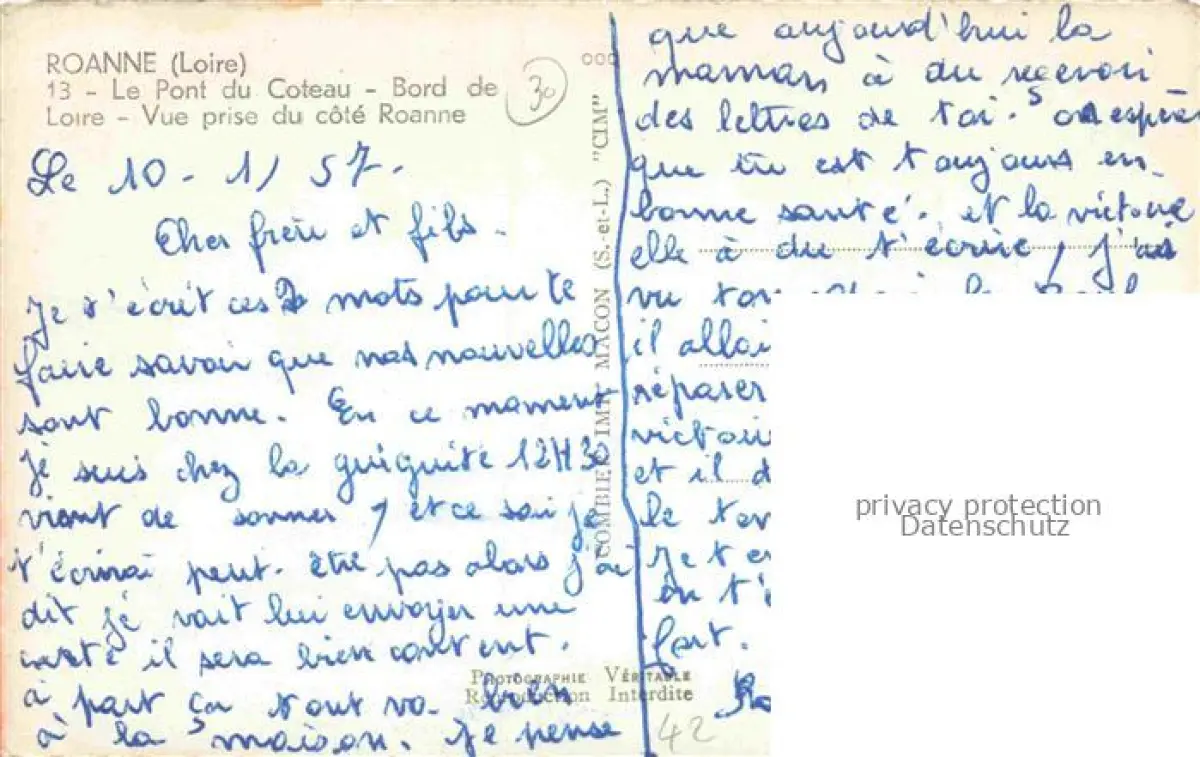 ROANNE (Loire)
13 - Le Pont du Coteau - Bord de
Loire - Vue prise du côté Roanne
30
Le 10 - 1/ 57.
Cher frère et fils.
Je t'écrit ces 2 mots pour te
faire savoir que nos nouvelles
sont bonne. En ce moment
je suis chez la guiguite 12H30
vient de sonner, et ce soir je
t'écrirai peut-être pas alors j'ai
dit je vait lui envoyer une
carte il sera bien content.
à part ça tout va bien
à la maison. Je pense
COMBIER IMP. MACON (S.-et-L.) "CIM"
PHOTOGRAPHIE VÉRITABLE
Reproduction Interdite
42
que aujourd'hui la
maman à du recevoir
des lettres de toi. on espère
que tu est toujours en
bonne santé. et la victoire
elle à du t'écrire, j'ai
vu ton
il allai
réparer
victoire
et il d
le
Je t
on t'
fort.
privacy protection
Datenschutz